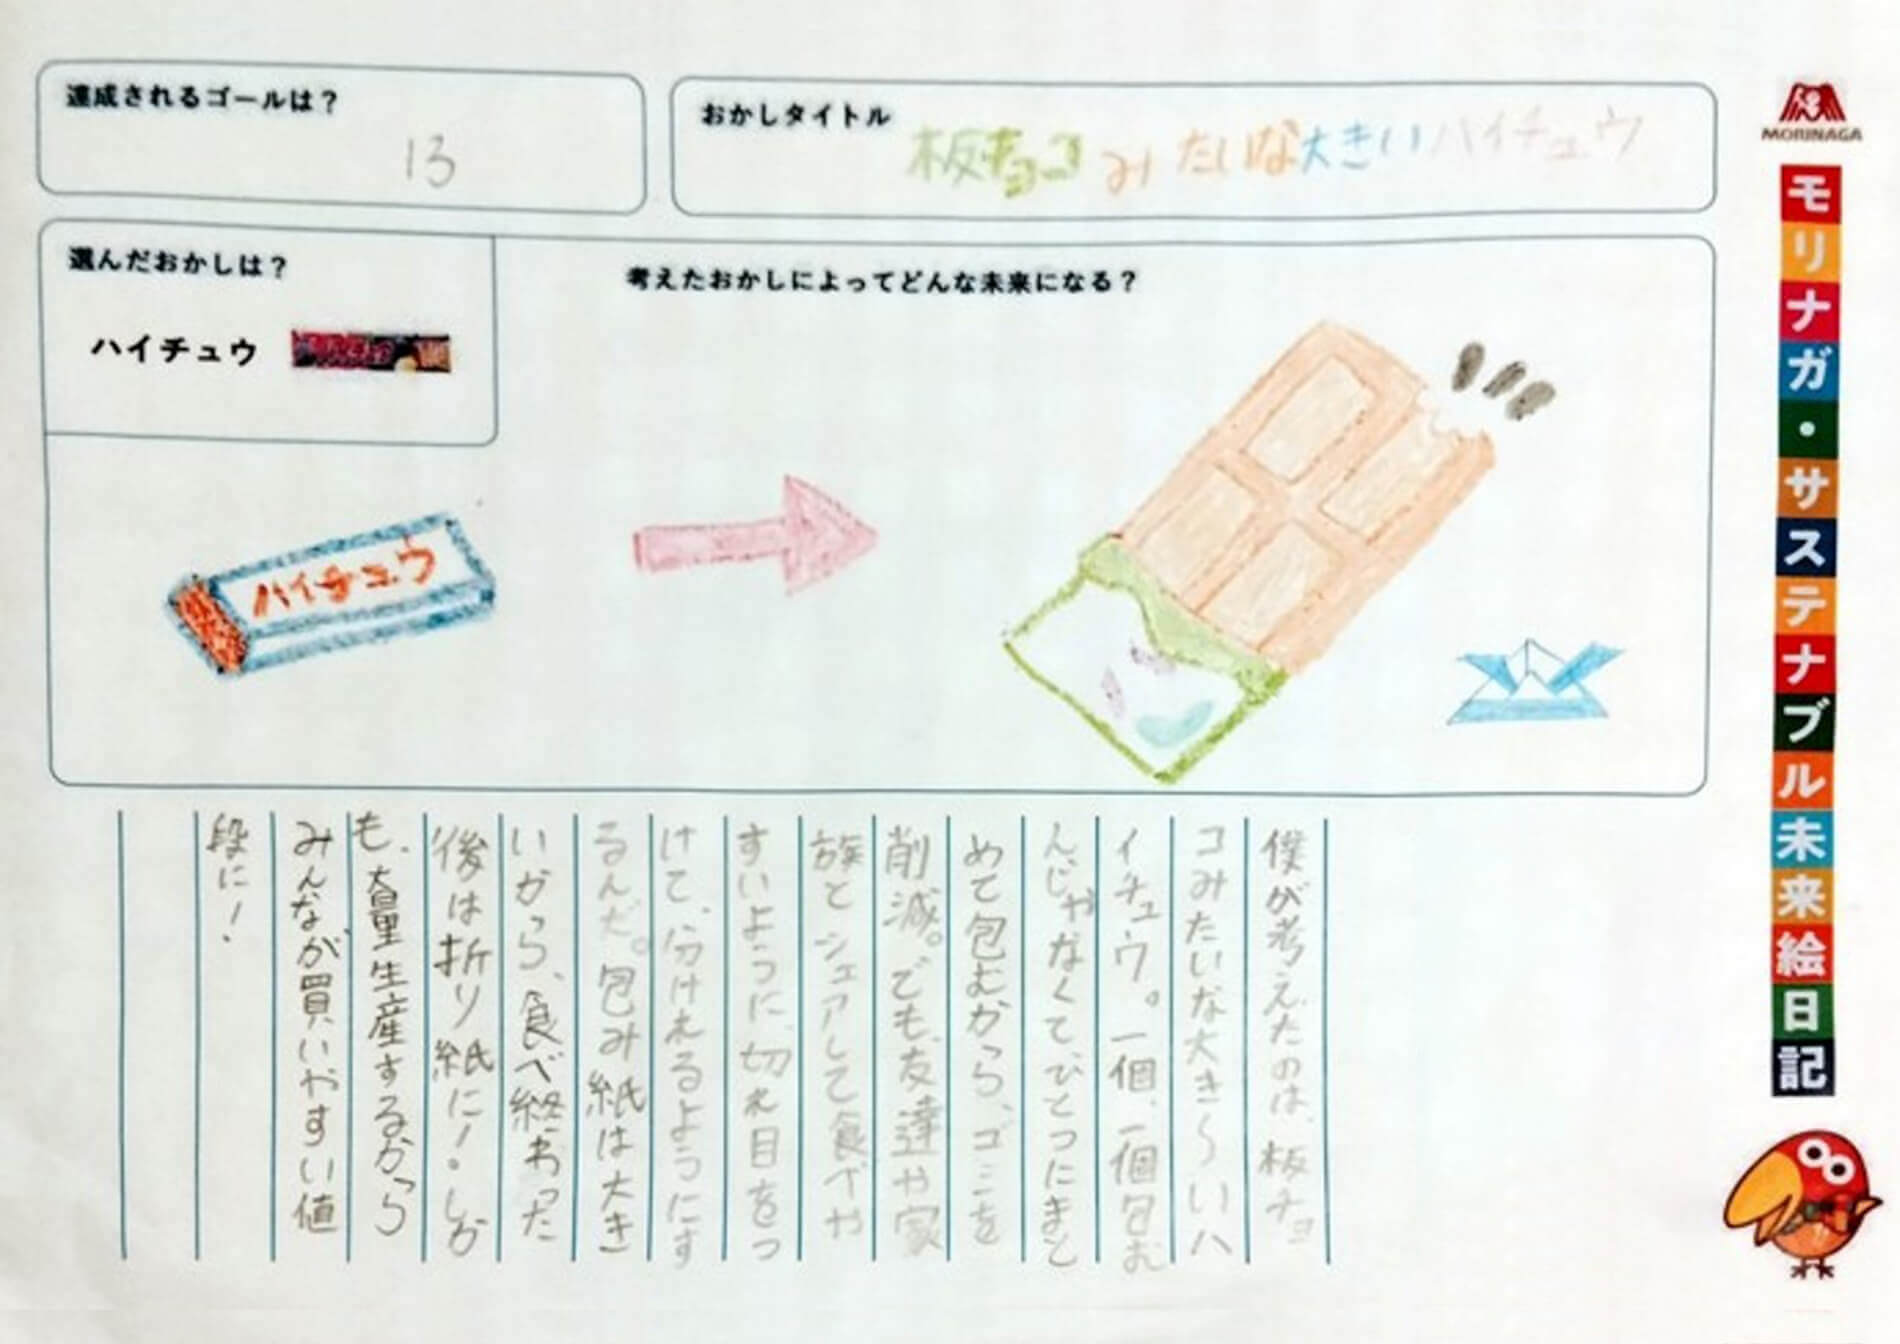 達成されるゴールは？
13
おかしタイトル
板チョコみたいな大きいハイチュウ
MORINAGA
モリナガ・サステナブル未来絵日記
選んだおかしは？
ハイチュウ
考えたおかしによってどんな未来になる？
ハイチュウ
僕が考えたのは、板チョ
コみたいな大き～いハ
イチュウ。一個、一個包む
んじゃなくて、ひとつにまと
めて包むから、ゴミを
削減。でも、友達や家
族とシェアして食べや
すいように、切れ目をつ
けて、分けれるようにす
るんだ。包み紙は大き
いから、食べ終わった
後は折り紙に！しか
も、大量生産するから
みんなが買いやすい値
段に！